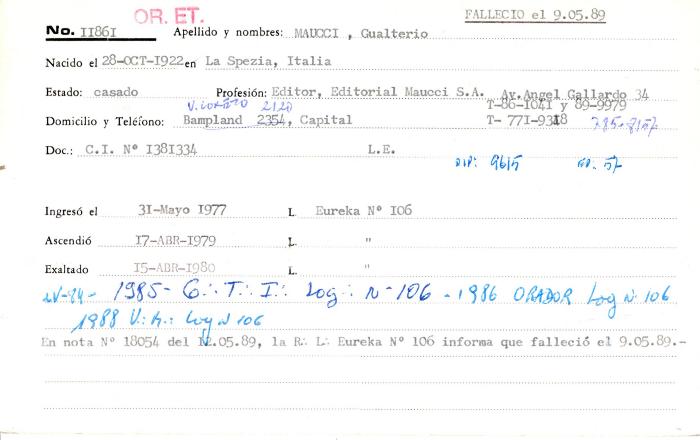 OR. ET.
FALLECIO el 9.05.89
No. II86I Apellido y nombres: MAUCCI , Gualterio
Nacido el 28-OCT-I922 en La Spezia, Italia
Estado: casado Profesión: Editor, Editorial Maucci S.A. Av.Angel Gallardo 34
T-86-I04I y 89-9979
2120
Domicilio y Teléfono: Bampland 2354, Capital T- 77I-93I8 785-8157
Doc.: C.I. Nº I38I334 L.E.
DIP: 9615 57
Ingresó el 3I-Mayo I977 L. Eureka Nº I06
Ascendió I7-ABR-I979 L. "
Exaltado I5-ABR-I980 L. "
1985- G∴ T∴ I∴ Log∴ N-106 - 1986 ORADOR Log N 106
1988 V∴ M∴ Log N 106
En nota Nº 18054 del 12.05.89, la R∴ L∴ Eureka Nº 106 informa que falleció el 9.05.89.-